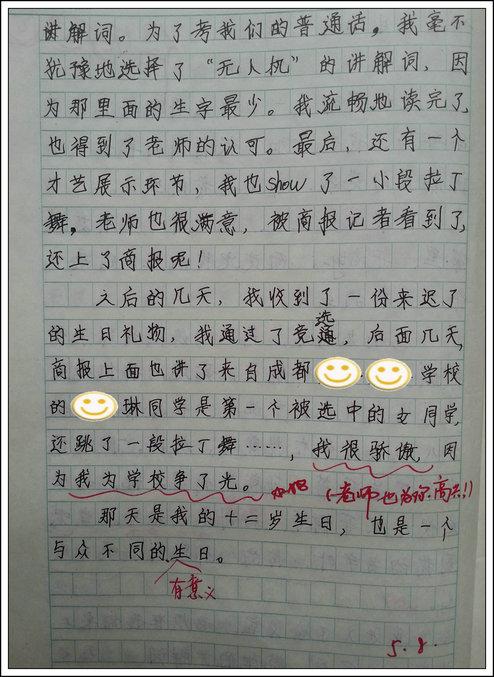 讲解词。为了考我们的普通话，我毫不
犹豫地选择了“无人机”的讲解词，因
为那里面的生字最少。我流畅地读完了，
也得到了老师的认可。最后，还有一个
才艺展示环节，我也show了一小段拉丁
舞，老师也很满意，被商报记者看到了，
还上了商报呢！
之后的几天，我收到了一份来迟了
的生日礼物，我通过了竞选，后面几天，
商报上面也讲了来自成都学校
的琳同学是第一个被选中的女同学，
还跳了一段拉丁舞……，我很骄傲，因
为我为学校争了光。
（老师也为你高兴！）
那天是我的十二岁生日，也是一个
与众不同的生日。
有意义
5.8.